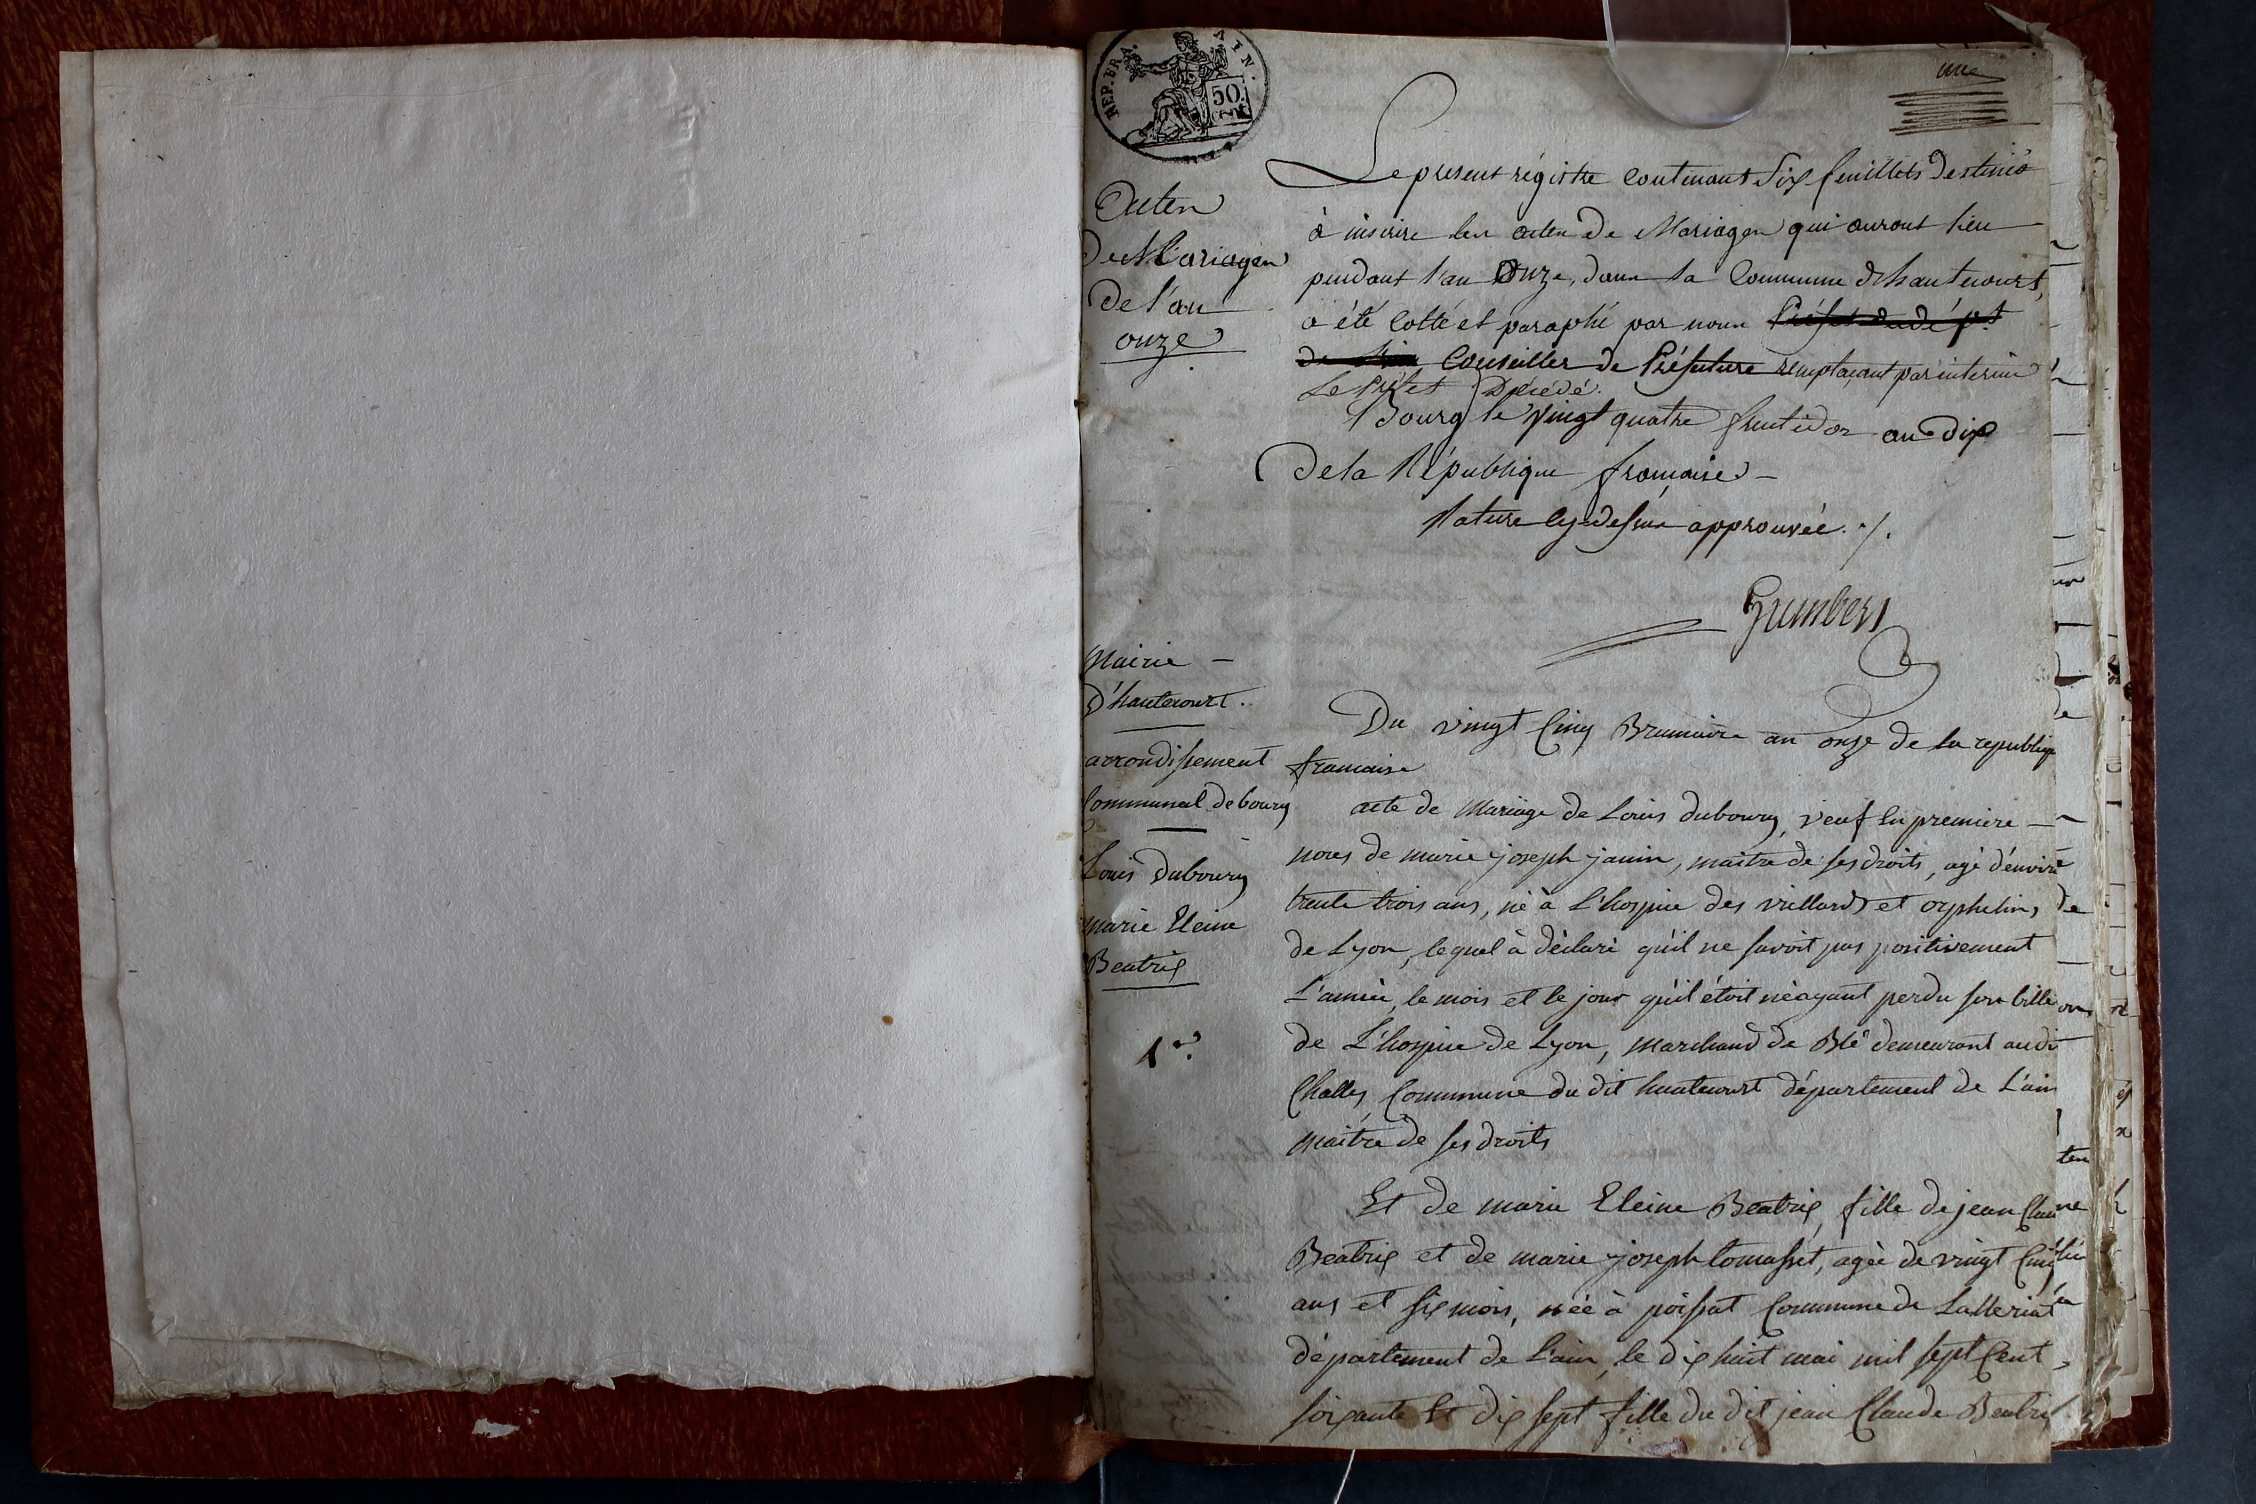 REP. FRA.
AIN.
50
une
Actes
de Mariages
de l'an
onze
Le present régistre contenant Six feuillets destinés
à inscrire les actes de Mariages qui auront lieu
pendant l'an Onze, dans la Commune d'hautecourt,
a été Cotté et paraphé par nous Préfet du dépt
de Conseiller de Préfecture remplaçant par interim
Le Préfet Décédé.
Bourg le Vingt quatre fructidor an dix
de la République française
Rature cy-dessus approuvée ./.
Humbert
Mairie
d'hautecourt.
arrondissement
Communal de bourg
Louis dubourg
marie Eleine
Beatrix
1er
Du vingt Cinq Brumaire an onze de la republique
francaise
acte de Mariage de Louis dubourg, veuf en premiere
noces de marie joseph janin, maitre de ses droits, agé d'environ
trente trois ans, né à L'hospice des viellards et orphelins
de Lyon, lequel à déclaré qu'il ne savoit pas positivement
L'année, le mois et le jour qu'il étoit né ayant perdu son bille
de L'hospice de Lyon, marchand de Blé demeurant au di
Challes, Commune du dit hautecourt département de L'ain
maitre de ses droits
Et de marie Eleine Beatrix, fille de jean Clau
Beatrix et de marie joseph tomasset, agée de vingt Cinq
ans et six mois, née à poissat Commune de Lalleriat
département de L'ain, le dix huit mai mil sept Cent
soixante Et dix sept fille du dit jean Claude Beatrix